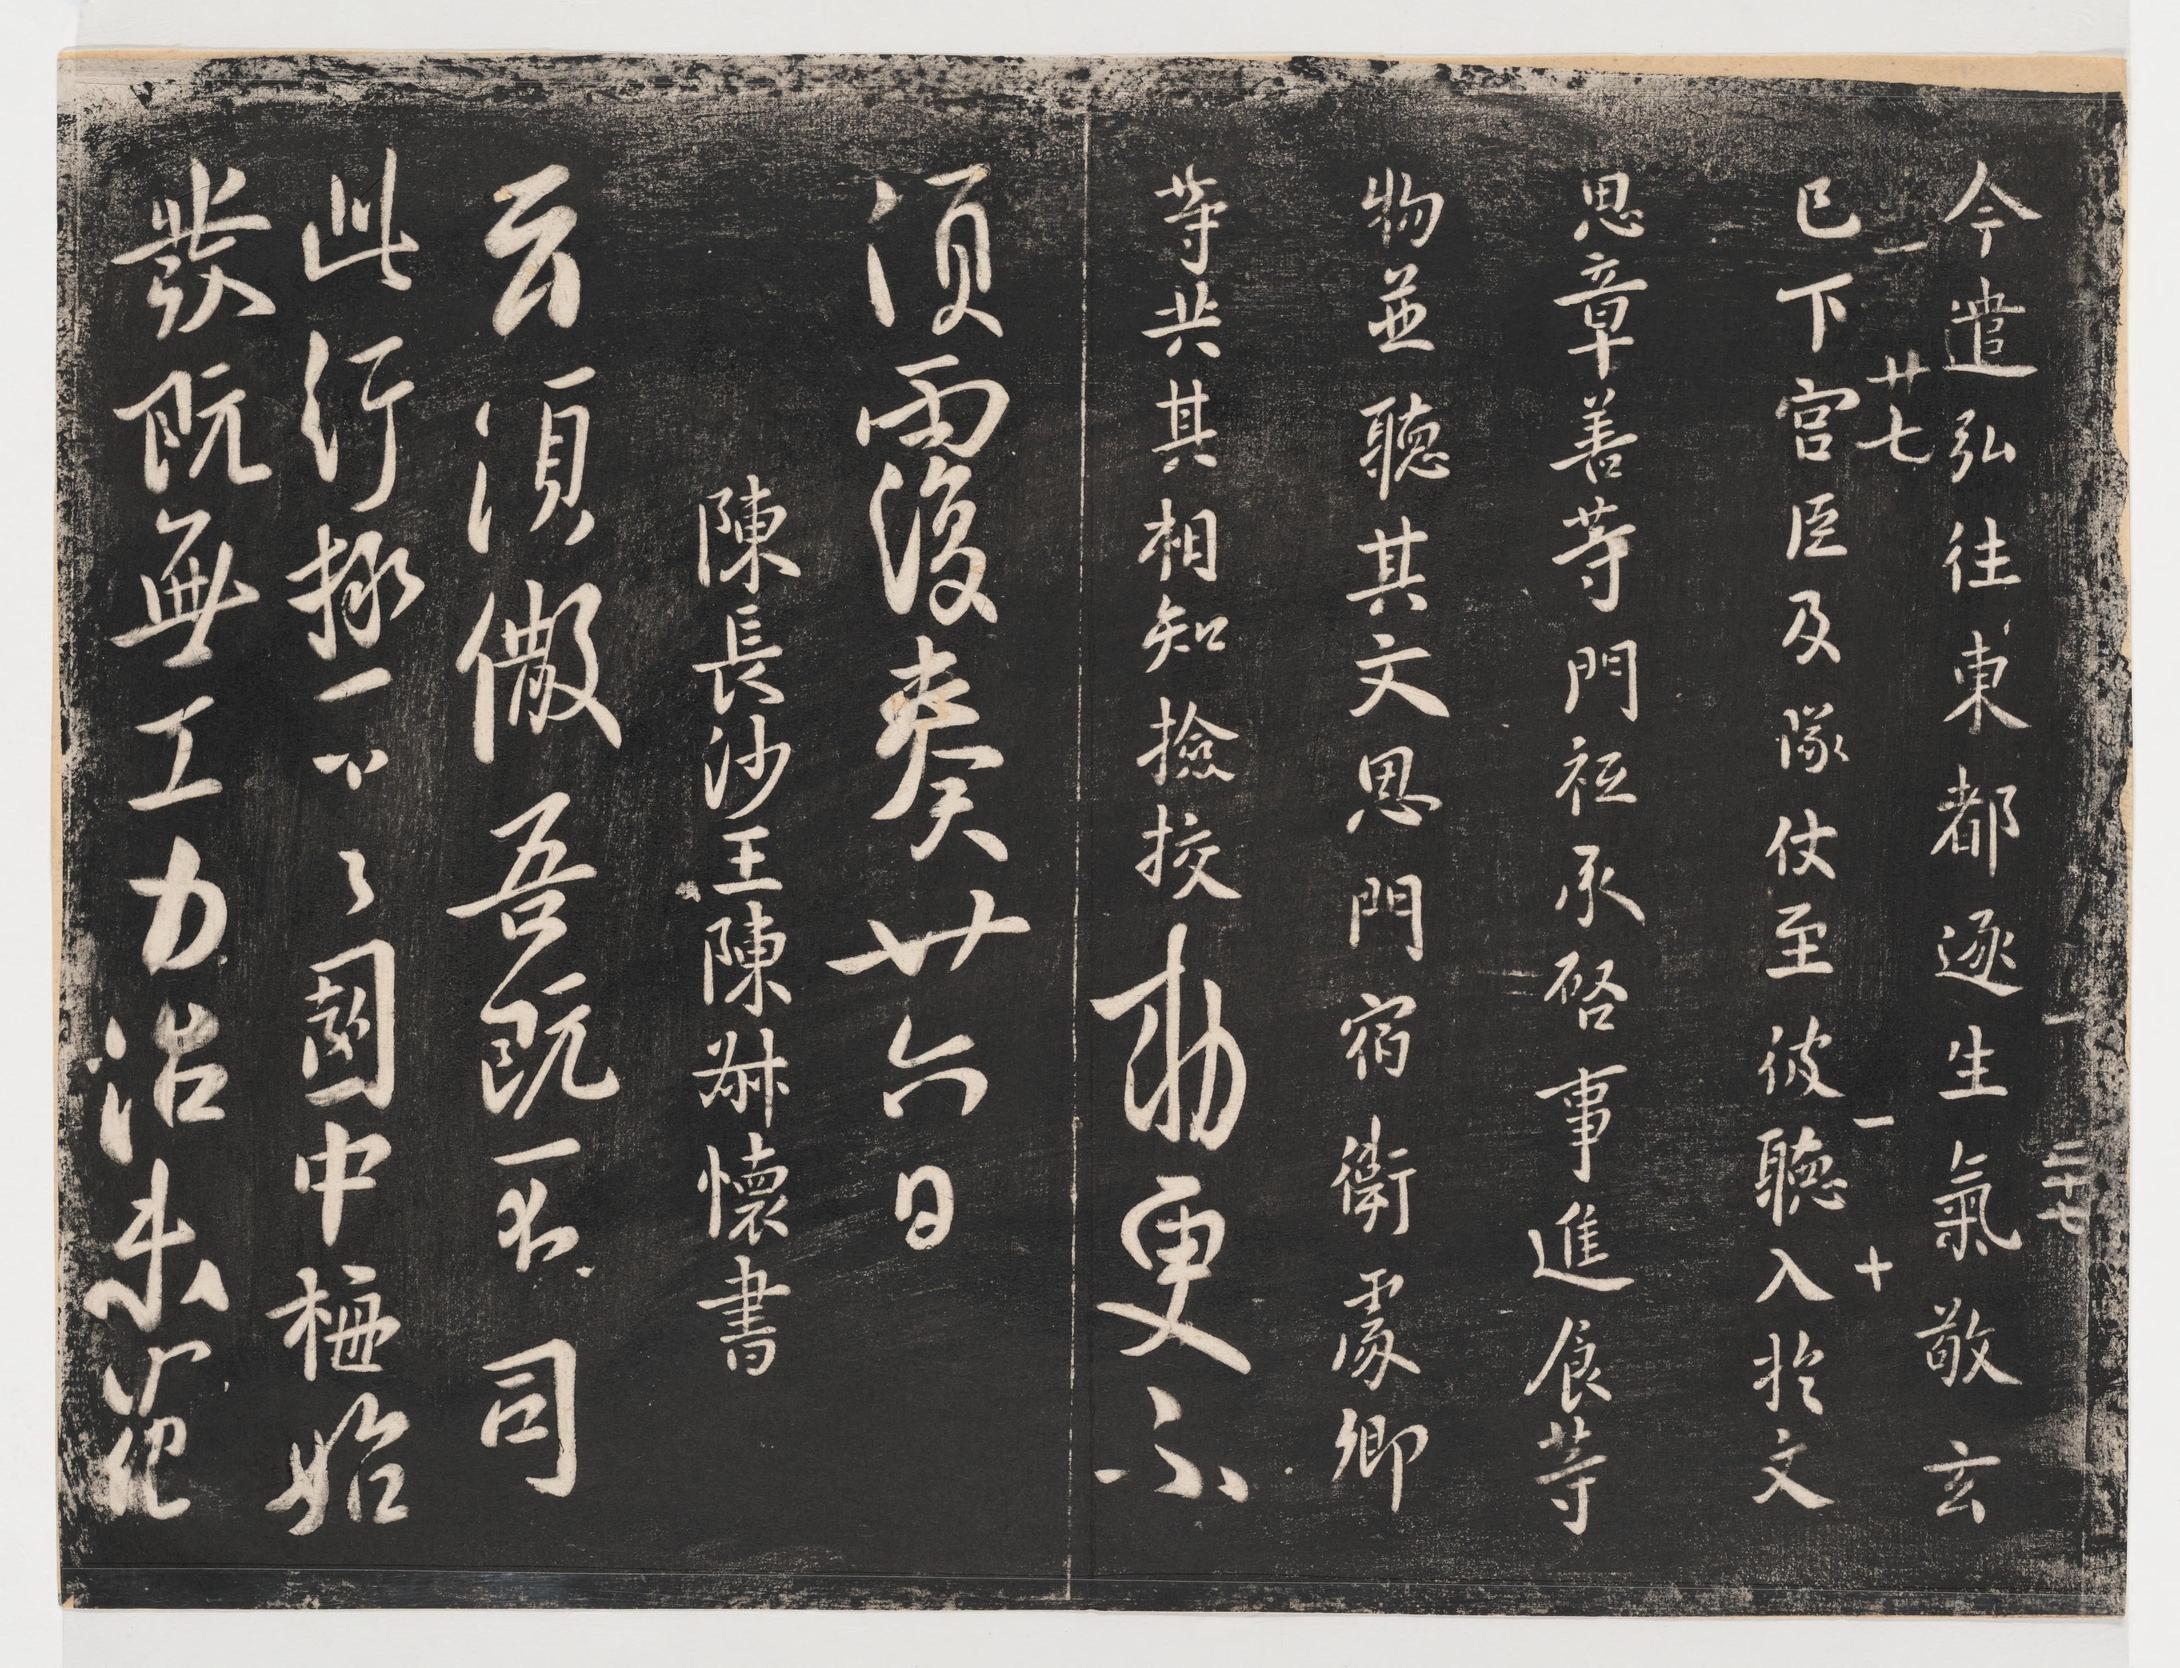 一 二十七
今遣弘往東都逐生氣敬玄
一 廿七
一 十
已下宮臣及隊仗至彼聽入於文
思章善等門祗承啓事進食等
物並聽其文思門宿衛處卿
等共其相知撿挍勅更不
須覆奏廿六日
陳長沙王陳叔懷書
云須儌吾既不司
此行極不了國中極始
發既無工力治未